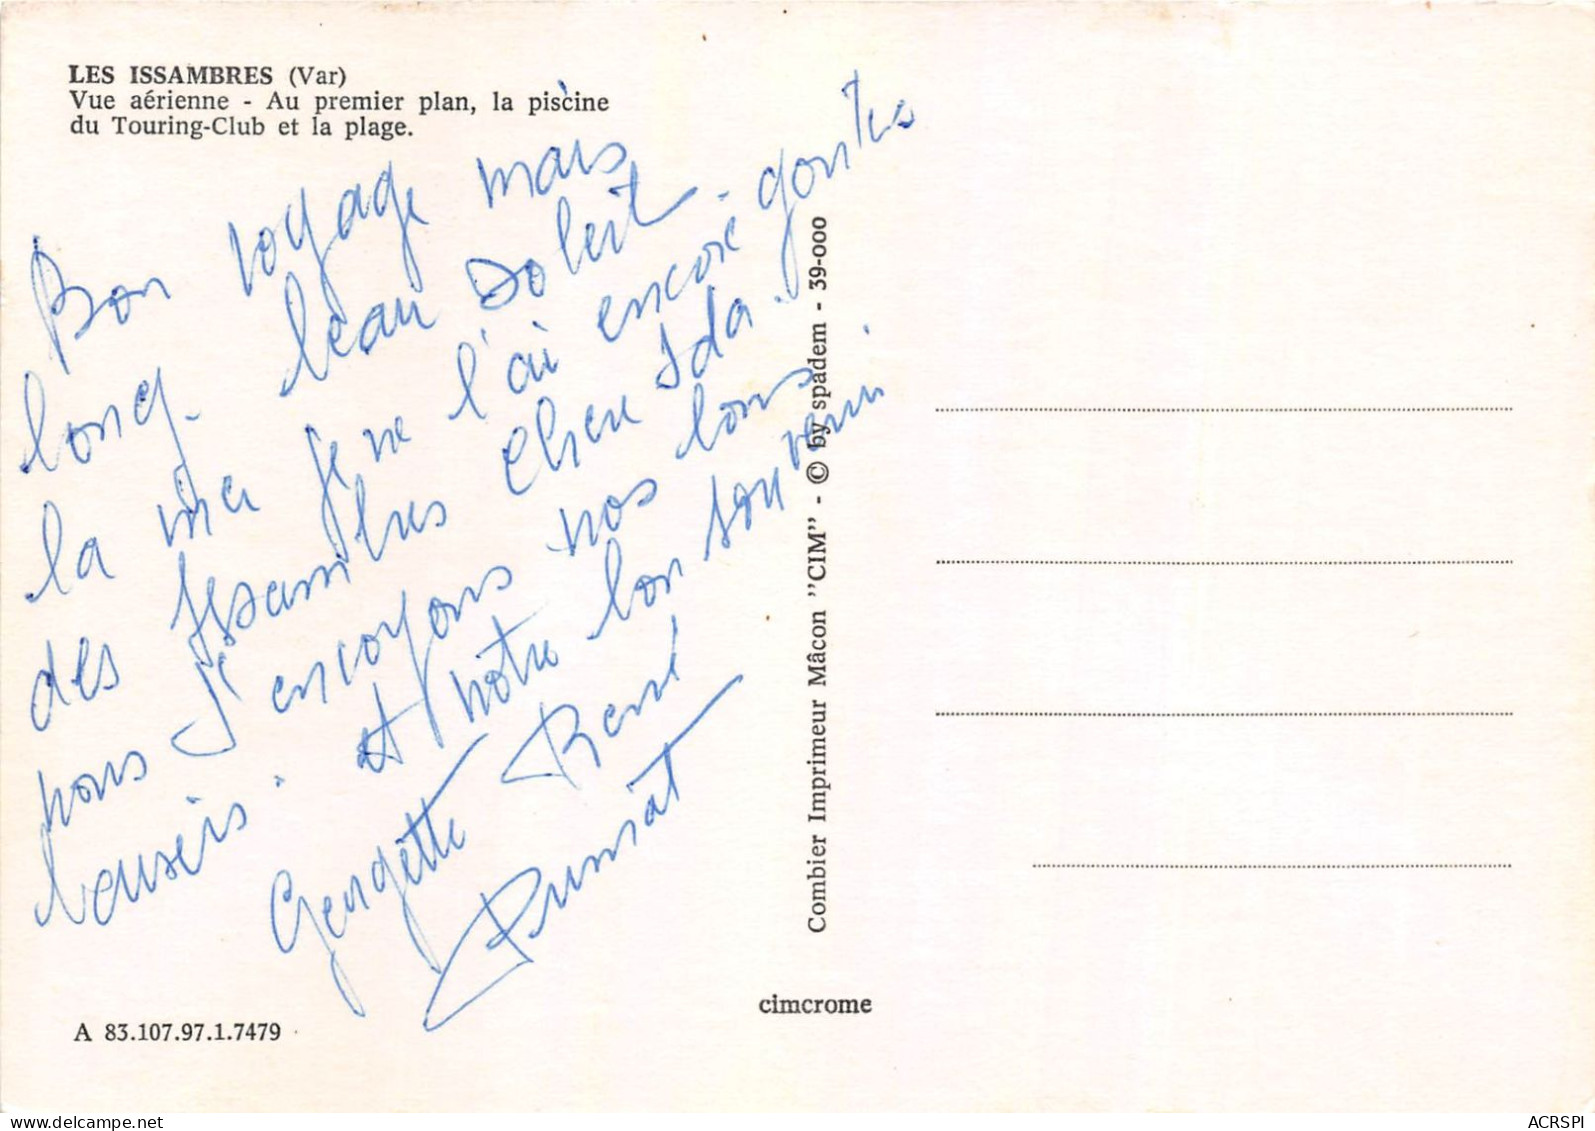 LES ISSAMBRES (Var)
Vue aérienne - Au premier plan, la piscine
du Touring-Club et la plage.
Bon voyage mais
long. beau Soleil
la mer je ne l'ai encore goutée
des Issambres Chère Ida.
nous t'envoyons nos bons
baisers. et notre bon souvenir.
Georgette René
A 83.107.97.1.7479
Combier Imprimeur Mâcon "CIM" - © by spadem - 39-000
cimcrome
delcampe.net
ACRSPI